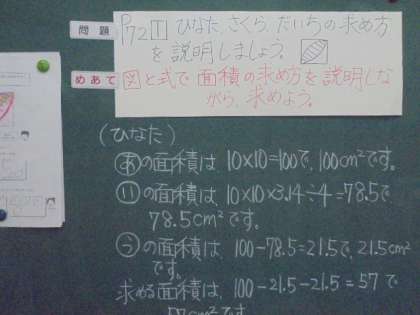 問題
P72 1 ひなた、さくら、だいちの求め方
を説明しましょう。
めあて
図と式で面積の求め方を説明しな
がら、求めよう。
(ひなた)
あの面積は、10×10=100で、100cm²です。
いの面積は、10×10×3.14÷4=78.5で
78.5cm²です。
うの面積は、100-78.5=21.5で、21.5cm²
です。
求める面積は、100-21.5-21.5=57で